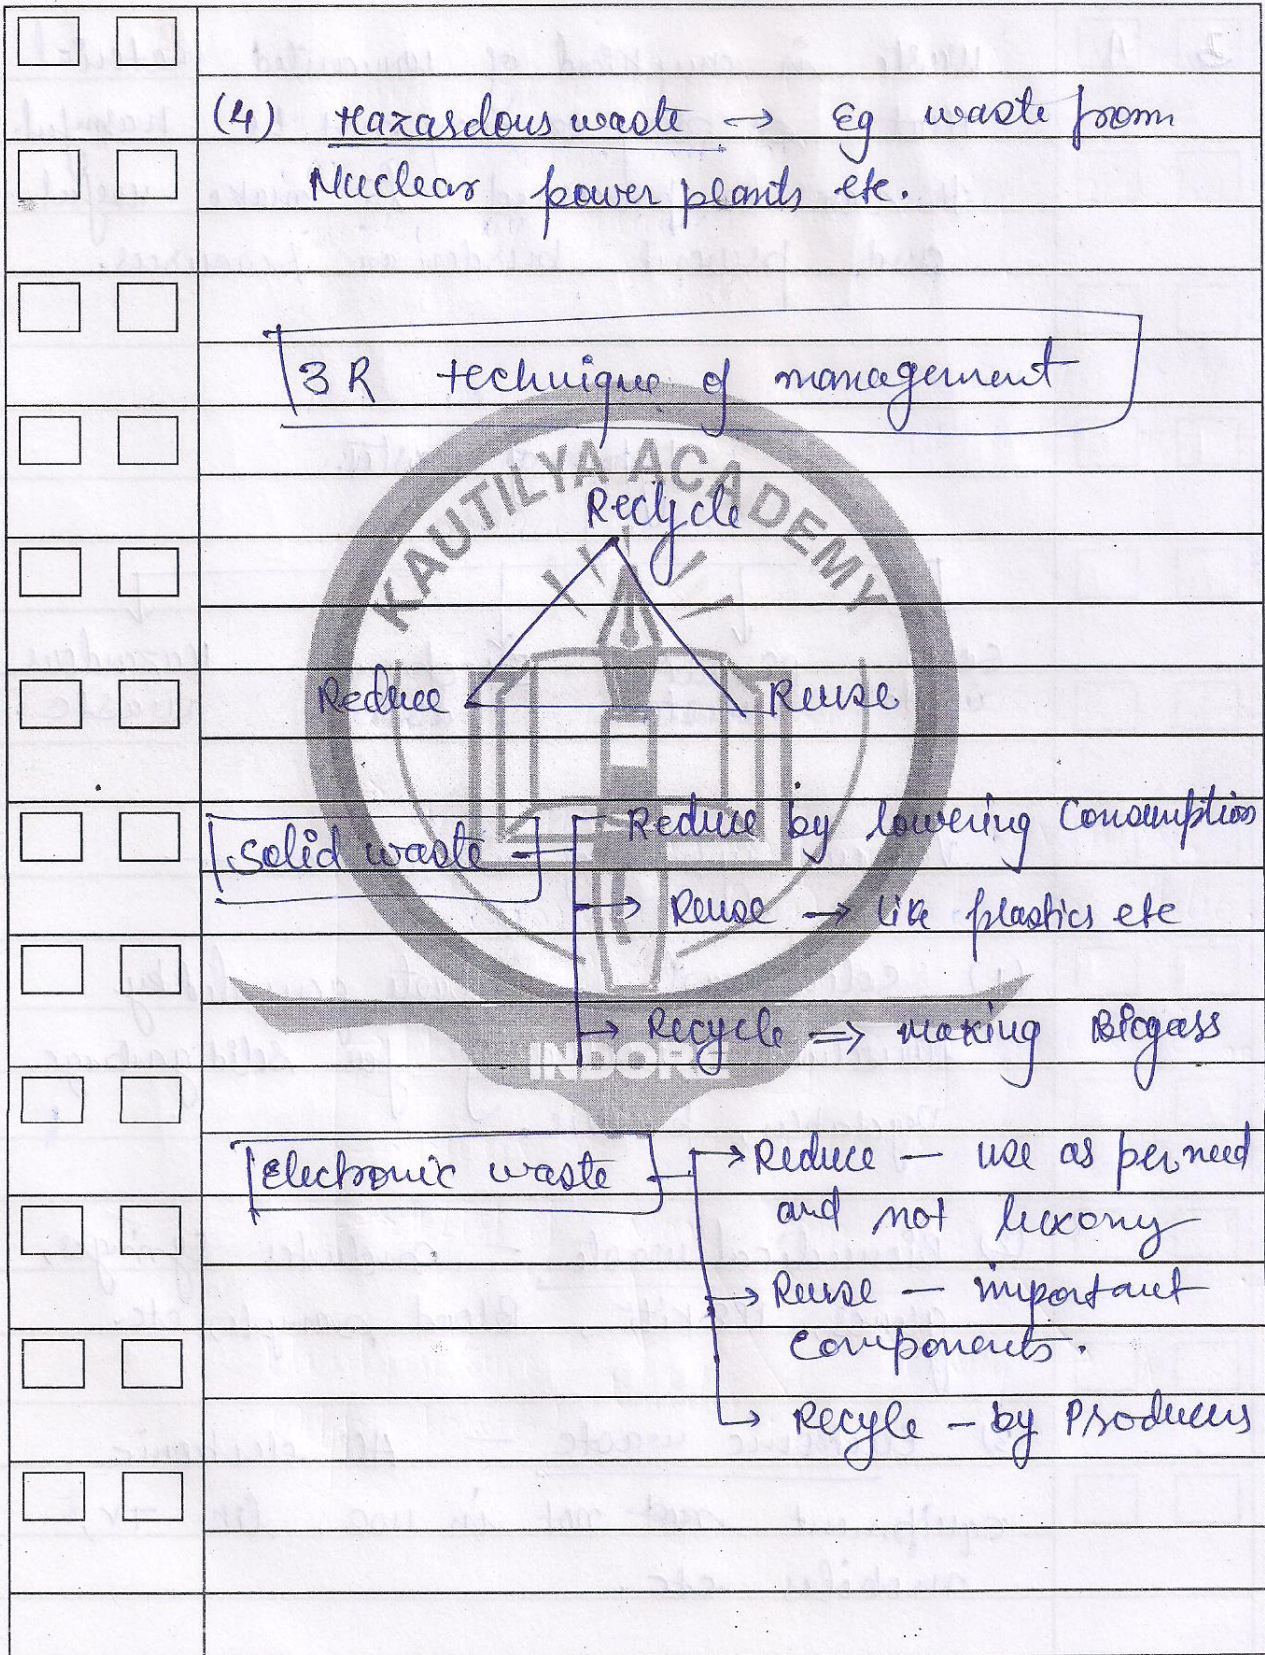 (4) Hazardous waste → Eg waste from
Nuclear power plants etc.
3R technique of management
KAUTILYA ACADEMY
Recycle
Reduce
Reuse
Solid waste
Reduce by lowering Consumption
→ Reuse → like plastics etc
→ Recycle ⇒ making Biogass
INDORE
Electronic waste
→ Reduce — use as per need
and not luxory
→ Reuse — important
components.
→ Recyle — by Producers